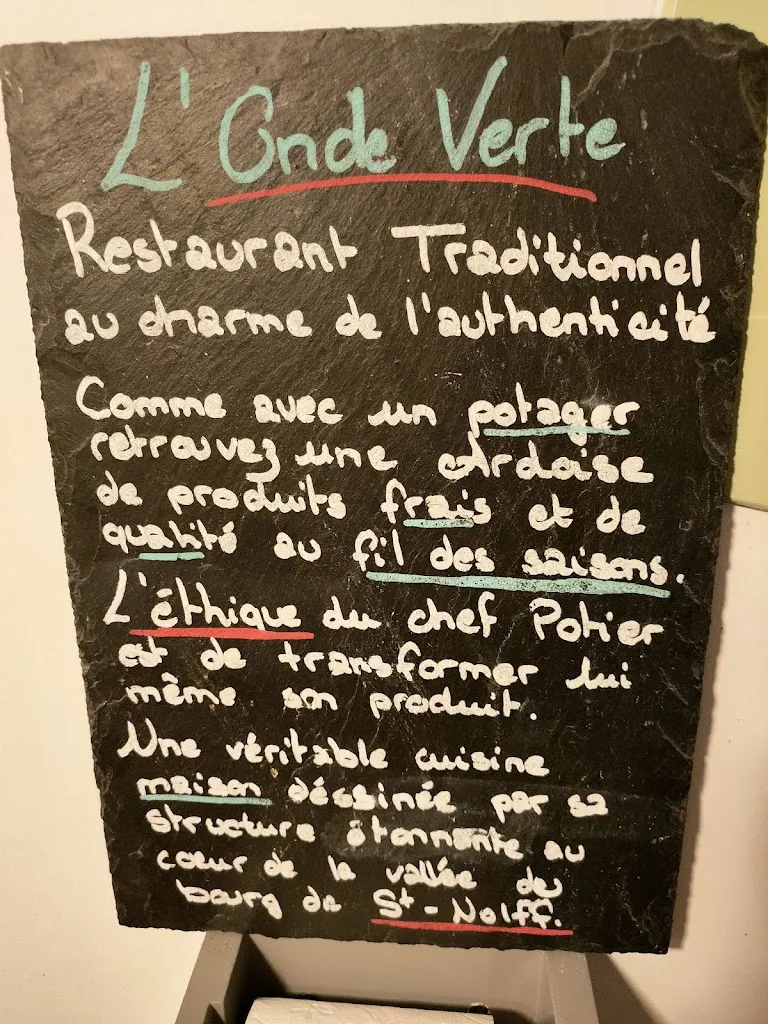 L'Onde Verte
Restaurant Traditionnel
au charme de l'authenticité
Comme avec un potager
retrouvez une Ardoise
de produits frais et de
qualité au fil des saisons.
L'éthique du chef Potier
est de transformer lui
même son produit.
Une véritable cuisine
maison déssinée par sa
structure étonnante au
coeur de la vallée du
bourg de St-Nolff.